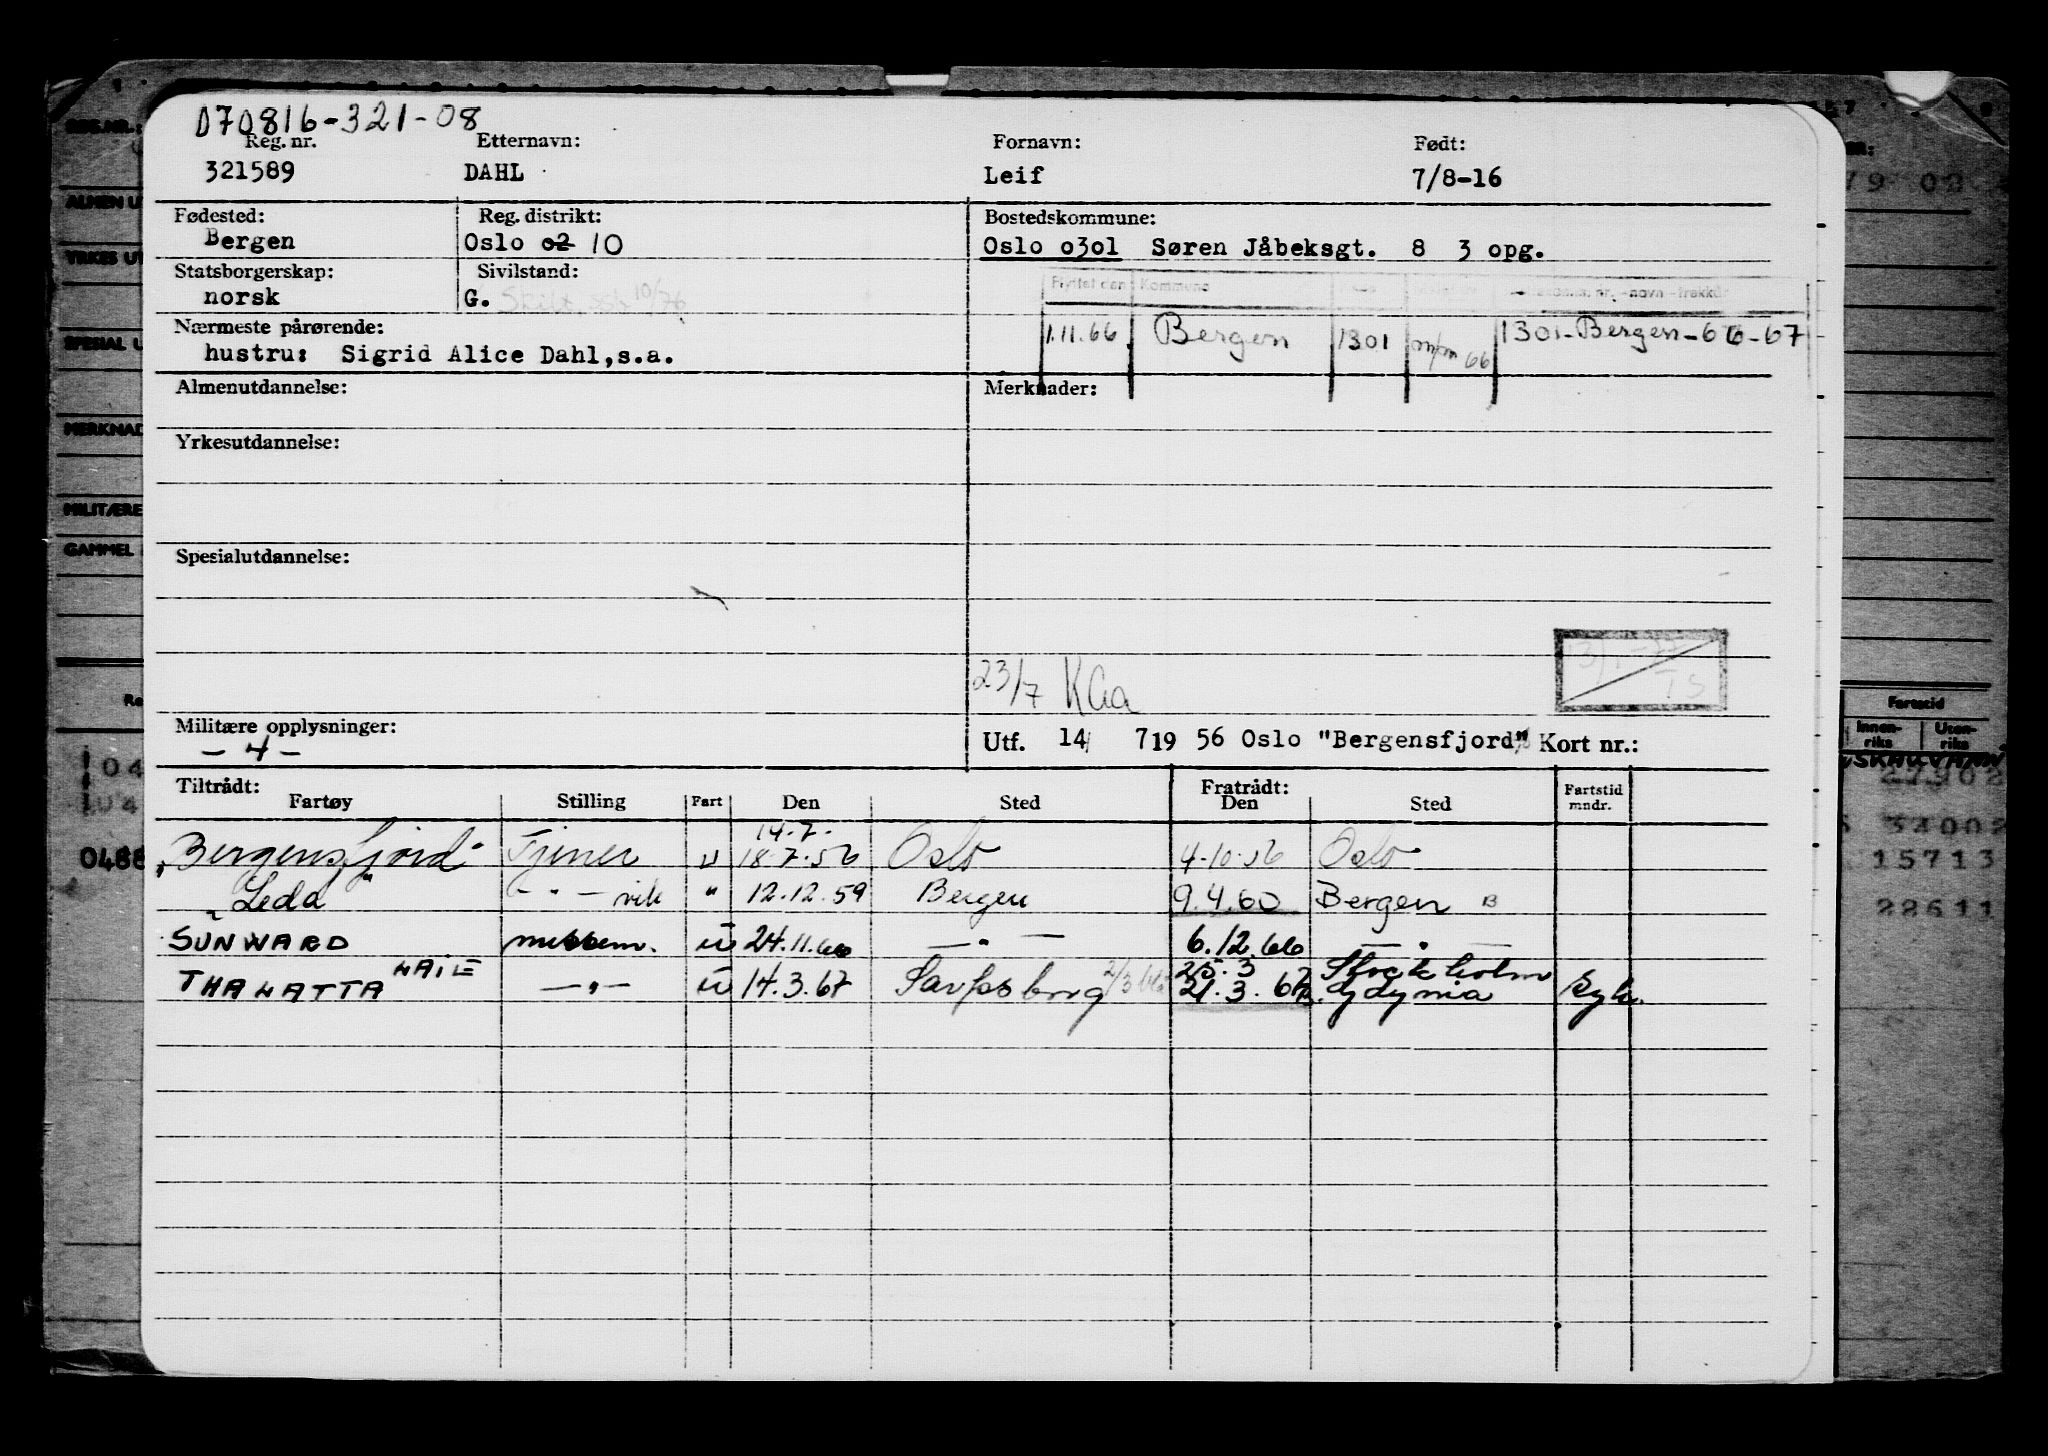 070816-321-08
Reg. nr. Etternavn: Fornavn: Født:
321589 DAHL Leif 7/8-16
Fødested: Reg. distrikt: Bostedskommune:
Bergen Oslo o2 10 Oslo o3o1 Søren Jåbeksgt. 8 3 opg.
Statsborgerskap: Sivilstand:
norsk G. 10/76
Flyttet den Kommune
Nærmeste pårørende:
hustru: Sigrid Alice Dahl,s.a.
1.11.66 Bergen 1301 66 1301-Bergen-66-67
Almenutdannelse: Merknader:
Yrkesutdannelse:
Spesialutdannelse:
23/7 KAa
Militære opplysninger:
- 4 -
Utf. 14/ 719 56 Oslo "Bergensfjord" Kort nr.:
Tiltrådt: Fratrådt:
Fartøy Stilling Fart Den Sted Den Sted Fartstid mndr.
14-7-
"Bergensfjord" Tjener u 18-7-56 Oslo 4-10-56 Oslo
"Leda" - " - vik " 12.12.59 Bergen 9.4.60 Bergen B
SUNWARD messem. u 24.11.66 - " - 6.12.66 - " -
25.3 Stockholm
THALATTA - " - u 14.3.67 Sarpsborg 21.3.67 Gdynia Syk.
REG.NR.:
ALMEN U
YRKES UT
SPESIAL U
MERKNAD
MILITÆRE
GAMMEL
Re
104
04
0488
79 02
Fartstid
Innen-riks Uten-riks
27902
34002
15713
22611